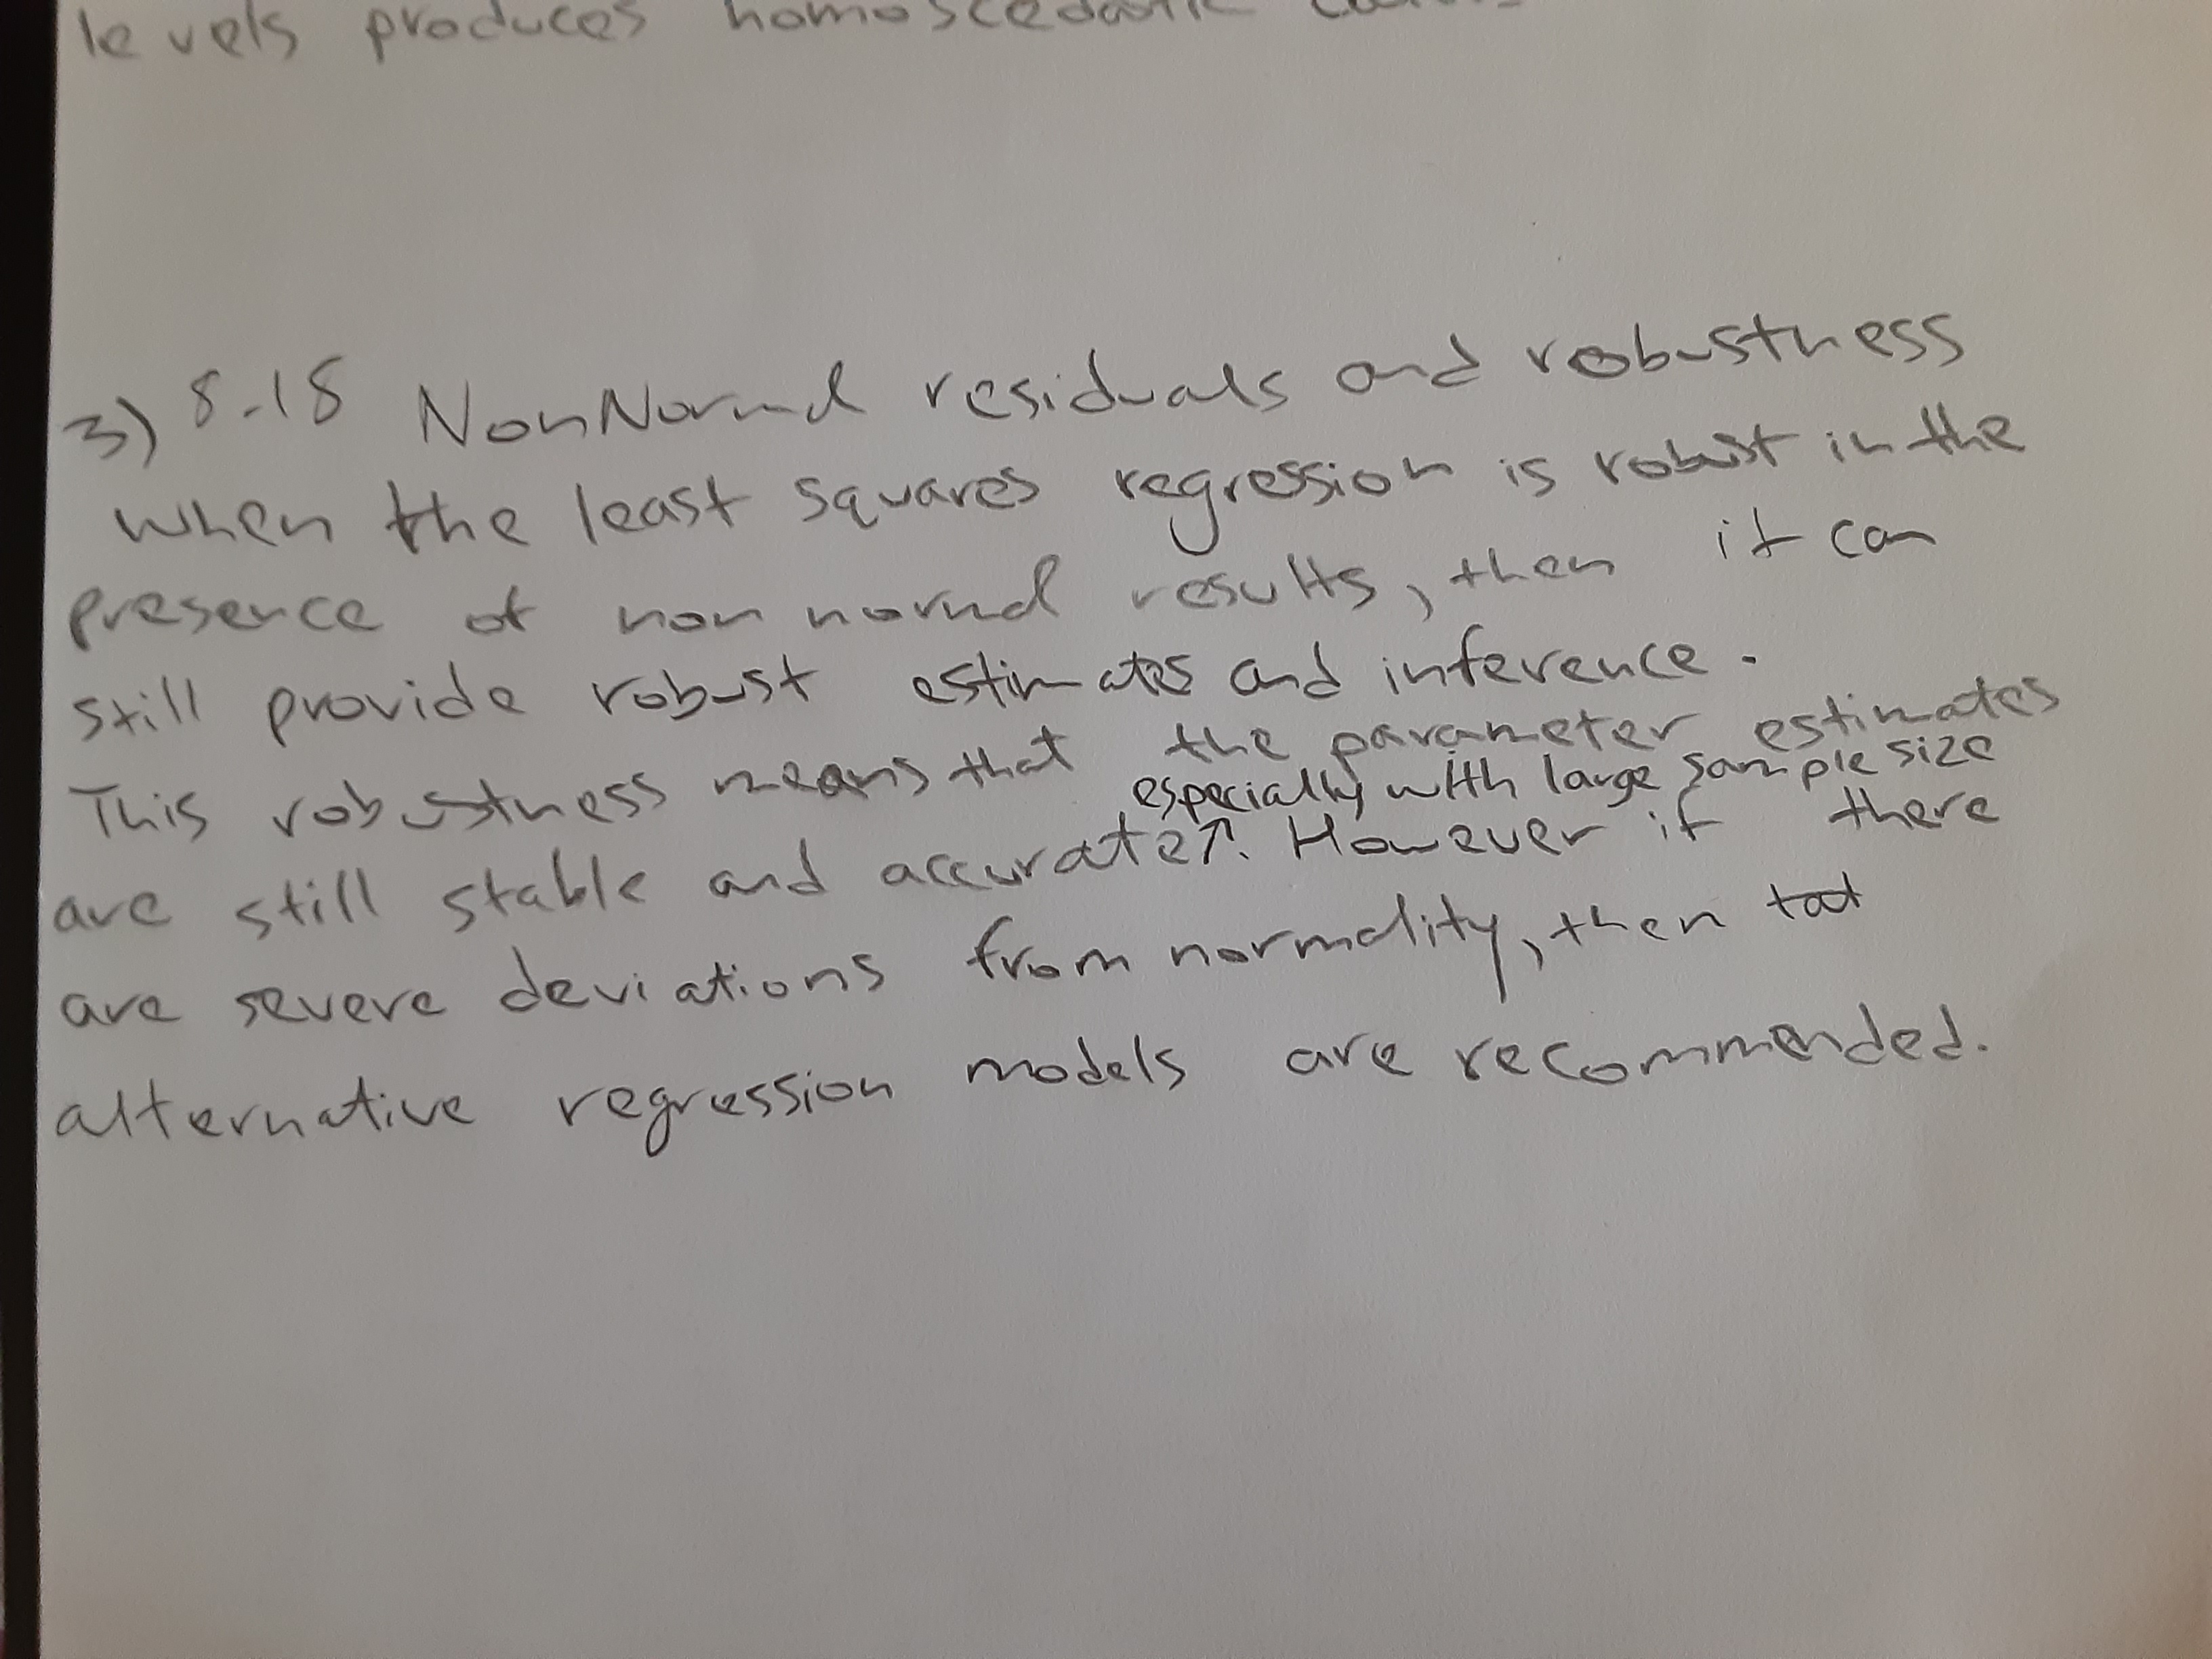 levels produces homoscedastic
3) 8.18 NonNormal residuals and robustness
when the least squares regression is robust in the
presence of non normal results, then it can
still provide robust estimates and inference.
This robustness means that the parameter estimates
especially with large sample size
are still stable and accurate↑. However if there
are severe deviations from normality, then
alternative regression models are recommended.